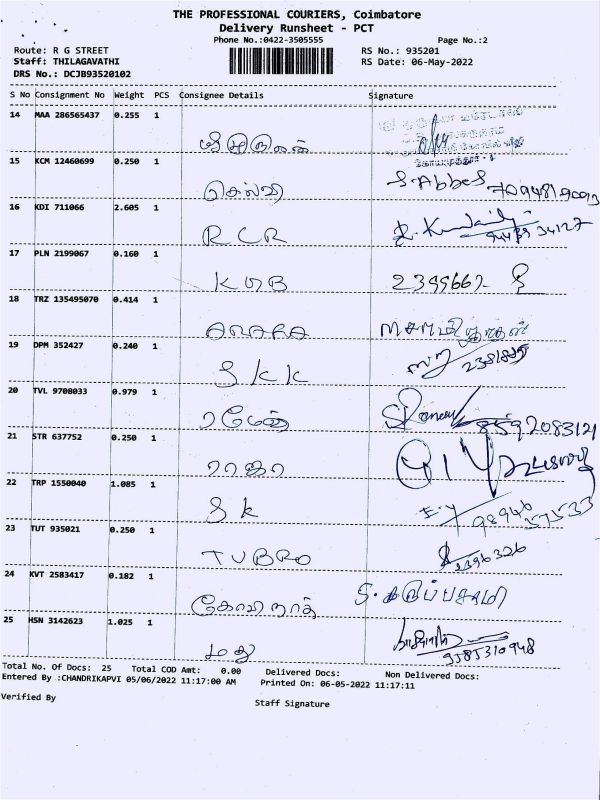 THE PROFESSIONAL COURIERS, Coimbatore
Delivery Runsheet - PCT
Phone No.:0422-3505555
Page No.:2
Route: R G STREET
RS No.: 935201
Staff: THILAGAVATHI
RS Date: 06-May-2022
DRS No.: DCJB93520102
S No Consignment No Weight PCS Consignee Details Signature
14 MAA 286565437 0.255 1
15 KCM 12460699 0.250 1 செல்வி S.Abbas
16 KDI 711066 2.605 1 RCR
17 PLN 2199067 0.160 1 KGB
18 TRZ 135495070 0.414 1
19 DPM 352427 0.240 1 SKK
20 TVL 9708033 0.979 1 ரமேஷ் 8592083121
21 STR 637752 0.250 1 ராஜா
22 TRP 1550040 1.085 1 SK 98946 57533
23 TUT 935021 0.250 1 TUBRO 2396326
24 KVT 2583417 0.182 1 கோபிநாத் S. கருப்பசாமி
25 HSN 3142623 1.025 1 மது 9585310948
Total No. Of Docs: 25 Total COD Amt: 0.00 Delivered Docs: Non Delivered Docs:
Entered By :CHANDRIKAPVI 05/06/2022 11:17:00 AM Printed On: 06-05-2022 11:17:11
Verified By
Staff Signature